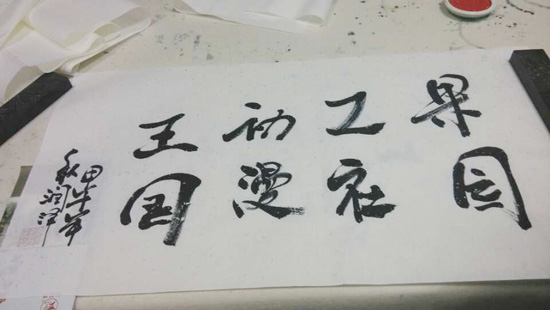 果园
工社
动漫
王国
甲午年
秋润泽